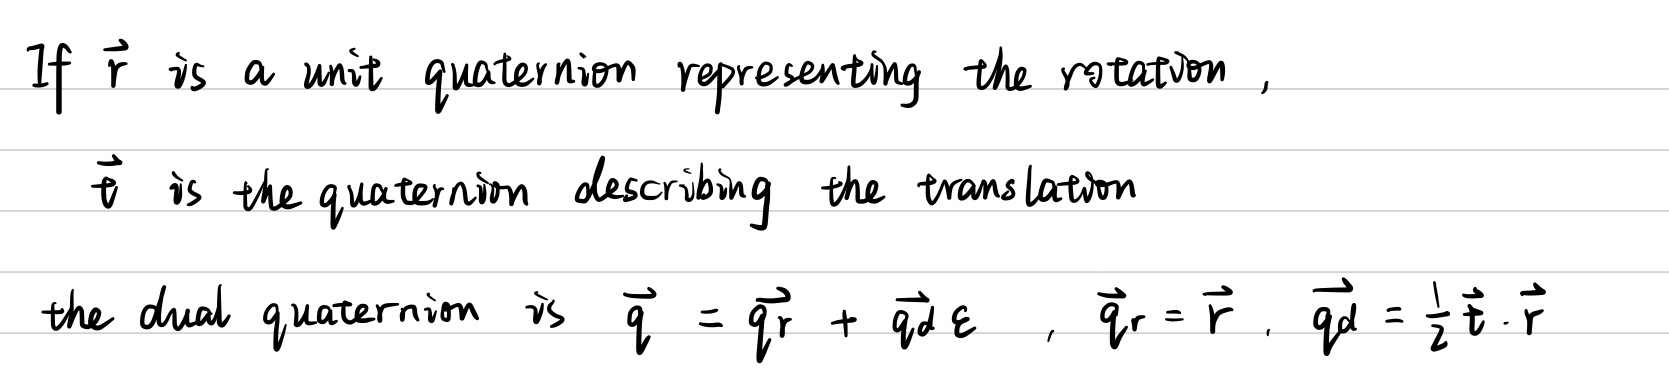 If r⃗ is a unit quaternion representing the rotation,
t⃗ is the quaternion describing the translation
the dual quaternion is q⃗ = q⃗r + q⃗d ε , q⃗r = r⃗ , q⃗d = 1/2 t⃗ · r⃗